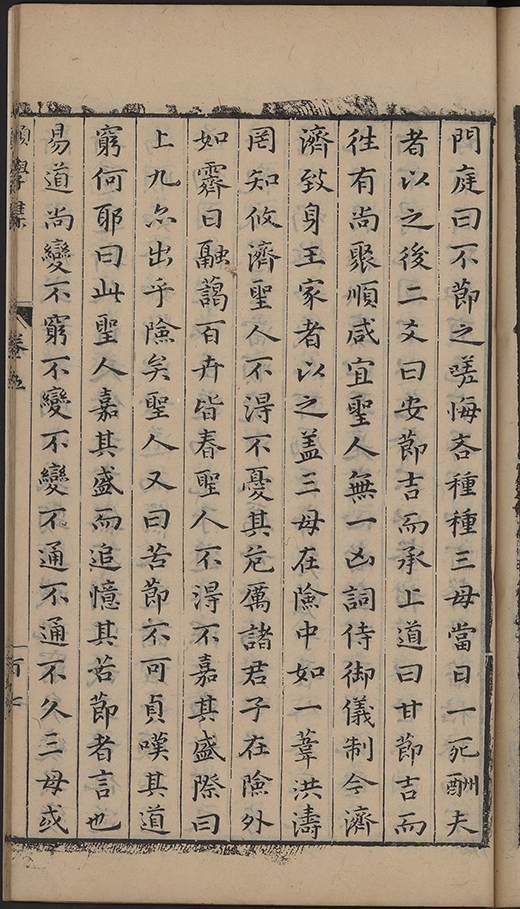 門庭曰不節之嗟悔吝種種三母當日一死酬夫
者以之後二爻曰安節吉而承上道曰甘節吉而
徃有尚聚順咸宜聖人無一凶詞侍御儀制今濟
濟致身王家者以之盖三母在險中如一葦洪濤
罔知攸濟聖人不淂不憂其危厲諸君子在險外
如霽日融藹百卉皆春聖人不淂不嘉其盛際曰
上九尒出乎險矣聖人又曰苦節不可貞嘆其道
窮何耶曰此聖人嘉其盛而追憶其苦節者言也
易道尚變不窮不變不變不通不通不久三母或
學集 卷五 百七